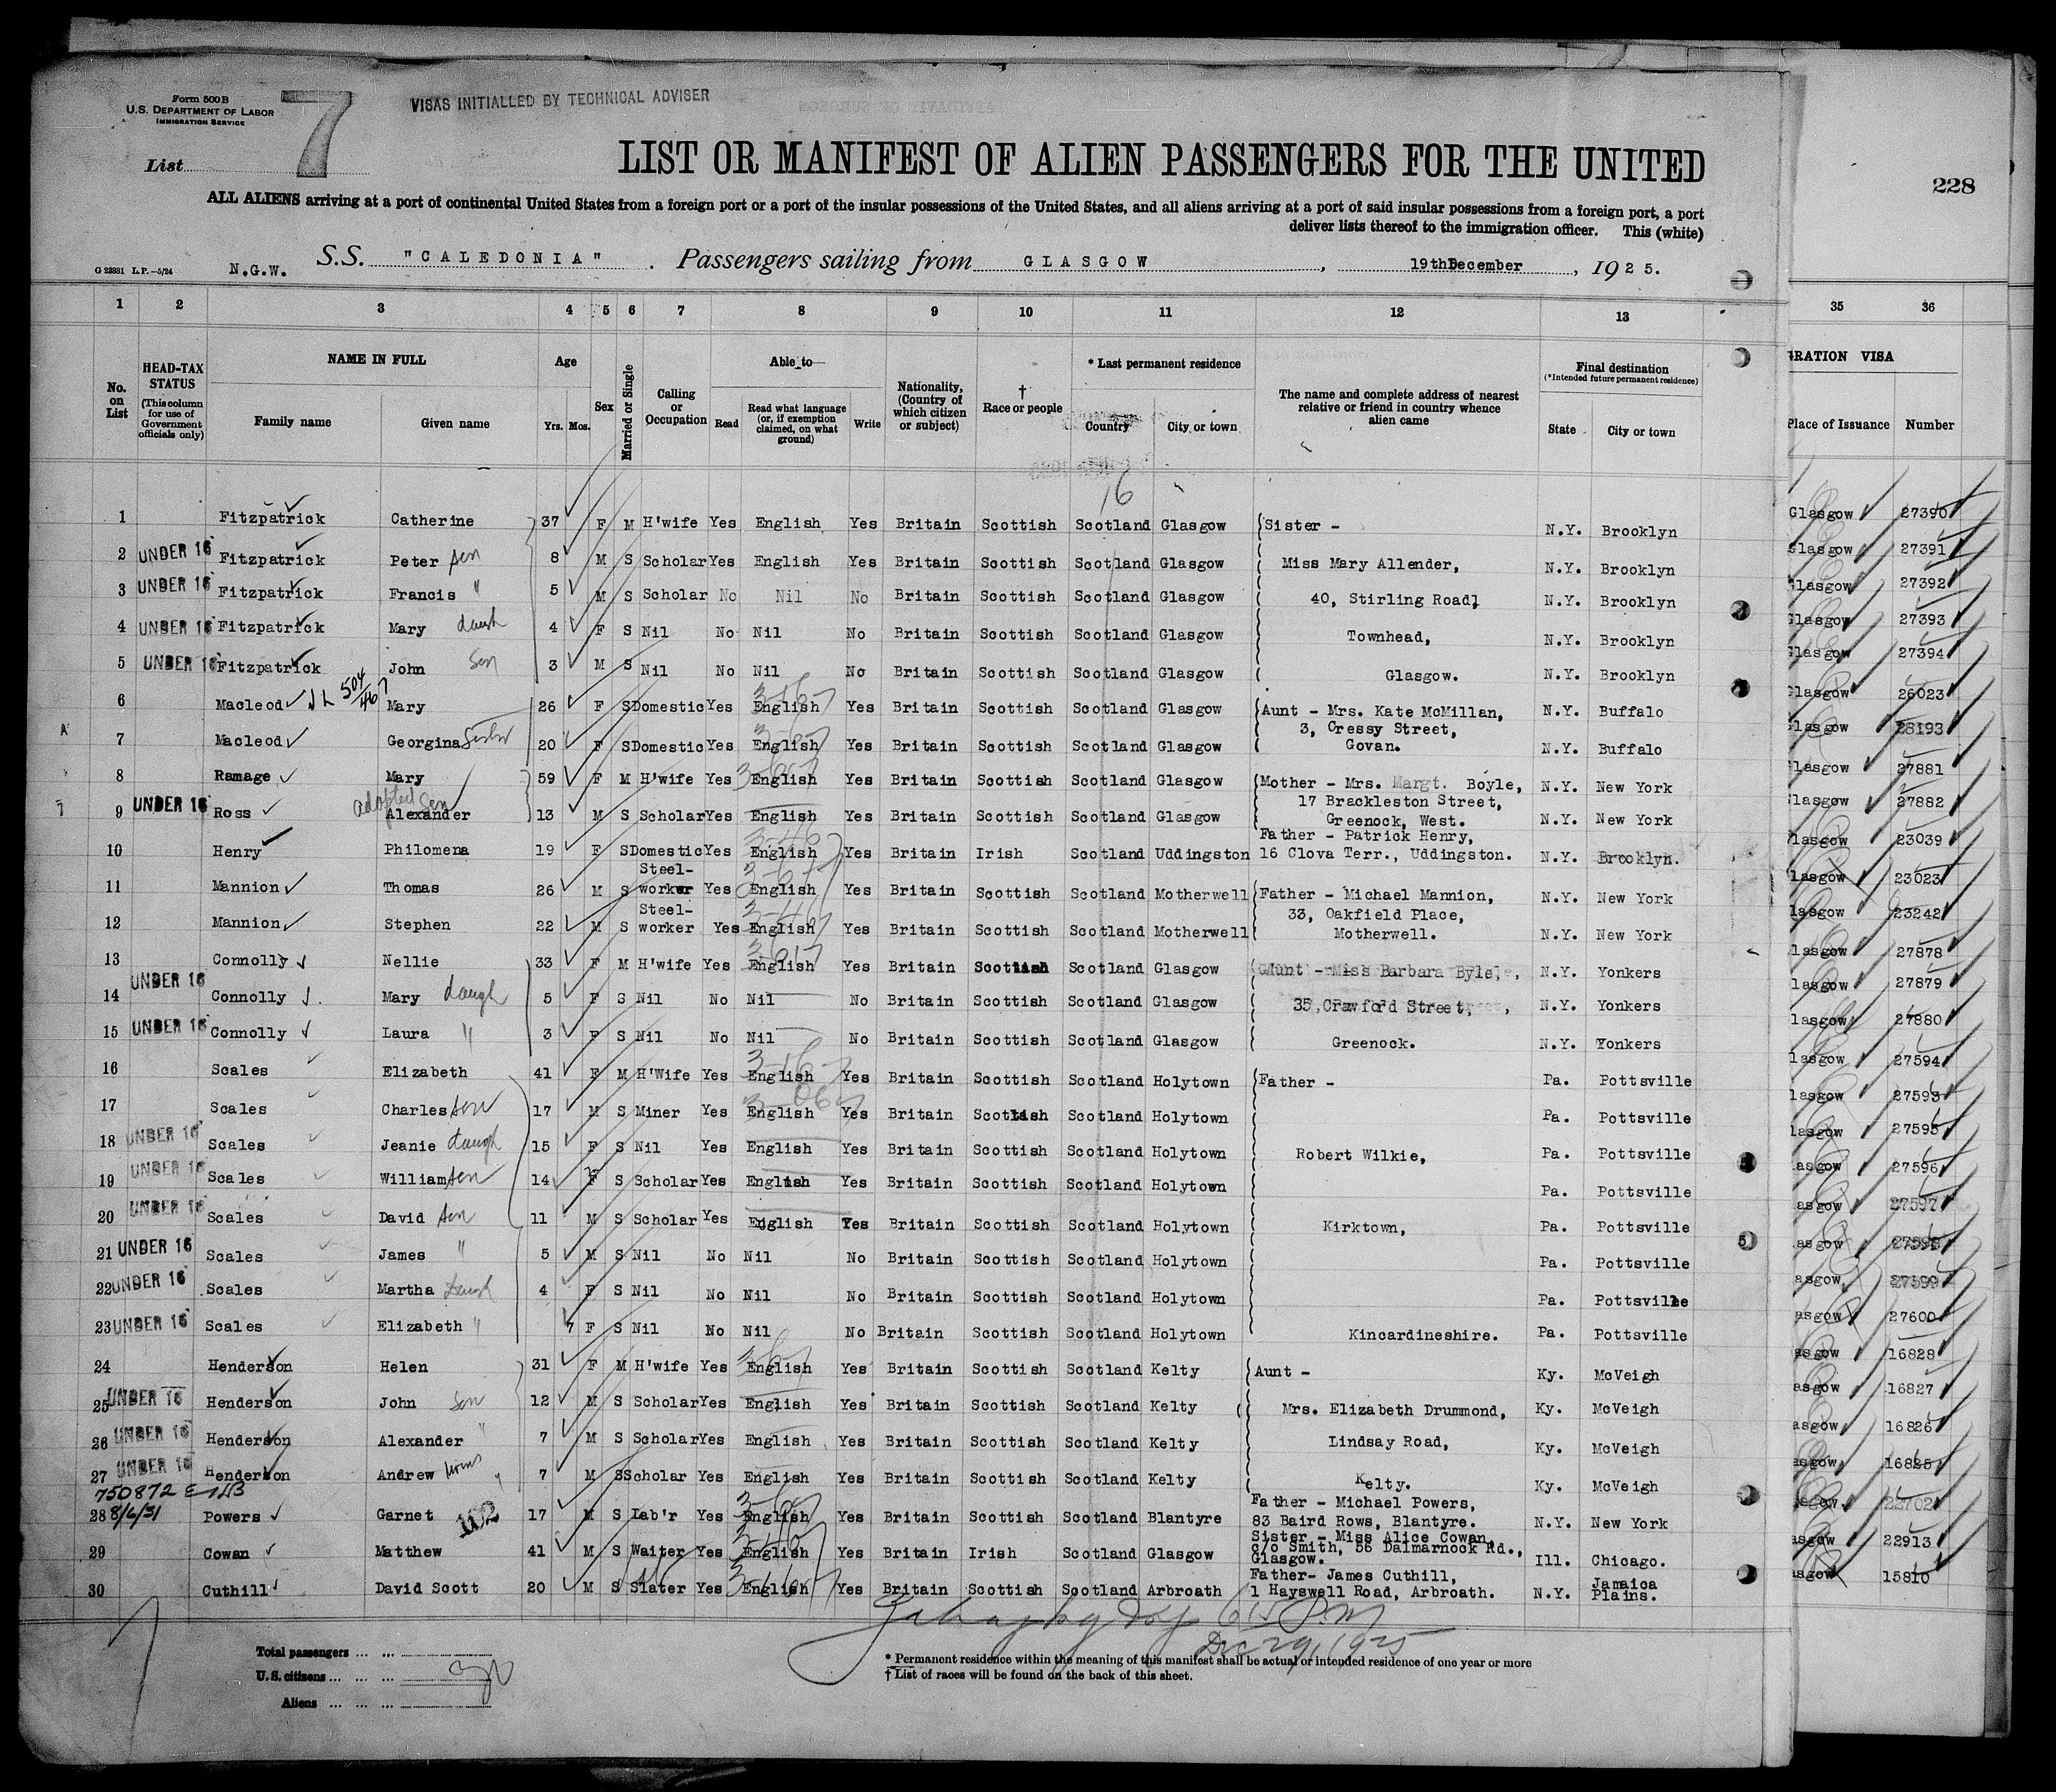 Form 500 B
U.S. DEPARTMENT OF LABOR
IMMIGRATION SERVICE
List 7
VISAS INITIALLED BY TECHNICAL ADVISER
LIST OR MANIFEST OF ALIEN PASSENGERS FOR THE UNITED
228
ALL ALIENS arriving at a port of continental United States from a foreign port or a port of the insular possessions of the United States, and all aliens arriving at a port of said insular possessions from a foreign port, a port
deliver lists thereof to the immigration officer. This (white)
G 23881 L.P.—5/24 N.G.W. S.S. "CALEDONIA". Passengers sailing from GLASGOW, 19th December, 1925.
1 2 3 4 5 6 7 8 9 10 11 12 13 35 36
No. on List
HEAD-TAX STATUS (This column for use of Government officials only)
NAME IN FULL
Family name Given name
Age Yrs. Mos.
Sex
Married or Single
Calling or Occupation
Able to
Read Read what language (or, if exemption claimed, on what ground) Write
Nationality, (Country of which citizen or subject)
† Race or people
* Last permanent residence
Country City or town
The name and complete address of nearest relative or friend in country whence alien came
Final destination (*Intended future permanent residence)
State City or town
GRATION VISA
Place of Issuance Number
16
1 Fitzpatrick Catherine 37 F M H'wife Yes English Yes Britain Scottish Scotland Glasgow Sister - N.Y. Brooklyn Glasgow 27390
2 UNDER 16 Fitzpatrick Peter son 8 M S Scholar Yes English Yes Britain Scottish Scotland Glasgow Miss Mary Allender, N.Y. Brooklyn Glasgow 27391
3 UNDER 16 Fitzpatrick Francis " 5 M S Scholar No Nil No Britain Scottish Scotland Glasgow 40, Stirling Road, N.Y. Brooklyn Glasgow 27392
4 UNDER 16 Fitzpatrick Mary daugh 4 F S Nil No Nil No Britain Scottish Scotland Glasgow Townhead, N.Y. Brooklyn Glasgow 27393
5 UNDER 16 Fitzpatrick John Son 3 M S Nil No Nil No Britain Scottish Scotland Glasgow Glasgow. N.Y. Brooklyn Glasgow 27394
6 Macleod 504/467 Mary 26 F S Domestic Yes English Yes Britain Scottish Scotland Glasgow Aunt - Mrs. Kate McMillan, N.Y. Buffalo Glasgow 26023
7 Macleod Georgina Sister 20 F S Domestic Yes English Yes Britain Scottish Scotland Glasgow 3, Cressy Street, Govan. N.Y. Buffalo Glasgow 28193
8 Ramage Mary 59 F M H'wife Yes English Yes Britain Scottish Scotland Glasgow Mother - Mrs. Margt. Boyle, N.Y. New York Glasgow 27881
9 UNDER 16 Ross adopted Son Alexander 13 M S Scholar Yes English Yes Britain Scottish Scotland Glasgow 17 Brackleston Street, Greenock, West. N.Y. New York Glasgow 27882
10 Henry Philomena 19 F S Domestic Yes English Yes Britain Irish Scotland Uddingston Father - Patrick Henry, 16 Clova Terr., Uddingston. N.Y. Brooklyn. Glasgow 23039
11 Mannion Thomas 26 M S Steel-worker Yes English Yes Britain Scottish Scotland Motherwell Father - Michael Mannion, N.Y. New York lasgow 23023
12 Mannion Stephen 22 M S Steel-worker Yes English Yes Britain Scottish Scotland Motherwell 33, Oakfield Place, Motherwell. N.Y. New York lasgow 23242
13 Connolly Nellie 33 F M H'wife Yes English Yes Britain Scottish Scotland Glasgow Aunt - Miss Barbara N.Y. Yonkers lasgow 27878
14 UNDER 16 Connolly Mary daugh 5 F S Nil No Nil No Britain Scottish Scotland Glasgow 35, Crawford Street, N.Y. Yonkers lasgow 27879
15 UNDER 16 Connolly Laura " 3 F S Nil No Nil No Britain Scottish Scotland Glasgow Greenock. N.Y. Yonkers lasgow 27880
16 Scales Elizabeth 41 F M H'Wife Yes English Yes Britain Scottish Scotland Holytown Father - Pa. Pottsville lasgow 27594
17 Scales Charles son 17 M S Miner Yes English Yes Britain Scottish Scotland Holytown Pa. Pottsville lasgow 27593
18 UNDER 16 Scales Jeanie daugh 15 F S Nil Yes English Yes Britain Scottish Scotland Holytown Robert Wilkie, Pa. Pottsville lasgow 27595
19 UNDER 16 Scales William son 14 F S Scholar Yes English Yes Britain Scottish Scotland Holytown Pa. Pottsville asgow 27596
20 UNDER 16 Scales David son 11 M S Scholar Yes English Yes Britain Scottish Scotland Holytown Kirktown, Pa. Pottsville asgow 27597
21 UNDER 16 Scales James " 5 M S Nil No Nil No Britain Scottish Scotland Holytown Pa. Pottsville asgow 27598
22 UNDER 16 Scales Martha Daugh 4 F S Nil No Nil No Britain Scottish Scotland Holytown Pa. Pottsville asgow 27599
23 UNDER 16 Scales Elizabeth " 7 F S Nil No Nil No Britain Scottish Scotland Holytown Kincardineshire. Pa. Pottsville asgow 27600
24 Henderson Helen 31 F M H'wife Yes English Yes Britain Scottish Scotland Kelty Aunt - Ky. McVeigh asgow 16828
25 UNDER 16 Henderson John Son 12 M S Scholar Yes English Yes Britain Scottish Scotland Kelty Mrs. Elizabeth Drummond, Ky. McVeigh asgow 16827
26 UNDER 16 Henderson Alexander " 7 M S Scholar Yes English Yes Britain Scottish Scotland Kelty Lindsay Road, Ky. McVeigh asgow 16826
27 UNDER 16 Henderson Andrew " 7 M S Scholar Yes English Yes Britain Scottish Scotland Kelty Kelty. Ky. McVeigh asgow 16825
750872
28 8/6/31 Powers Garnet 17 M S Lab'r Yes English Yes Britain Scottish Scotland Blantyre Father - Michael Powers, 83 Baird Rows, Blantyre. N.Y. New York
29 Cowan Matthew 41 M S Waiter Yes English Yes Britain Irish Scotland Glasgow Sister - Miss Alice Cowan, c/o Smith, 56 Dalmarnock Rd., Glasgow. Ill. Chicago. asgow 22913
30 Cuthill David Scott 20 M S Slater Yes English Yes Britain Scottish Scotland Arbroath Father- James Cuthill, 1 Hayswell Road, Arbroath. N.Y. Jamaica Plains. asgow 15810
Dec 29, 1925
Total passengers ... ...
U.S. citizens ... ... ... 30
Aliens ... ... ...
* Permanent residence within the meaning of this manifest shall be actual or intended residence of one year or more
† List of races will be found on the back of this sheet.